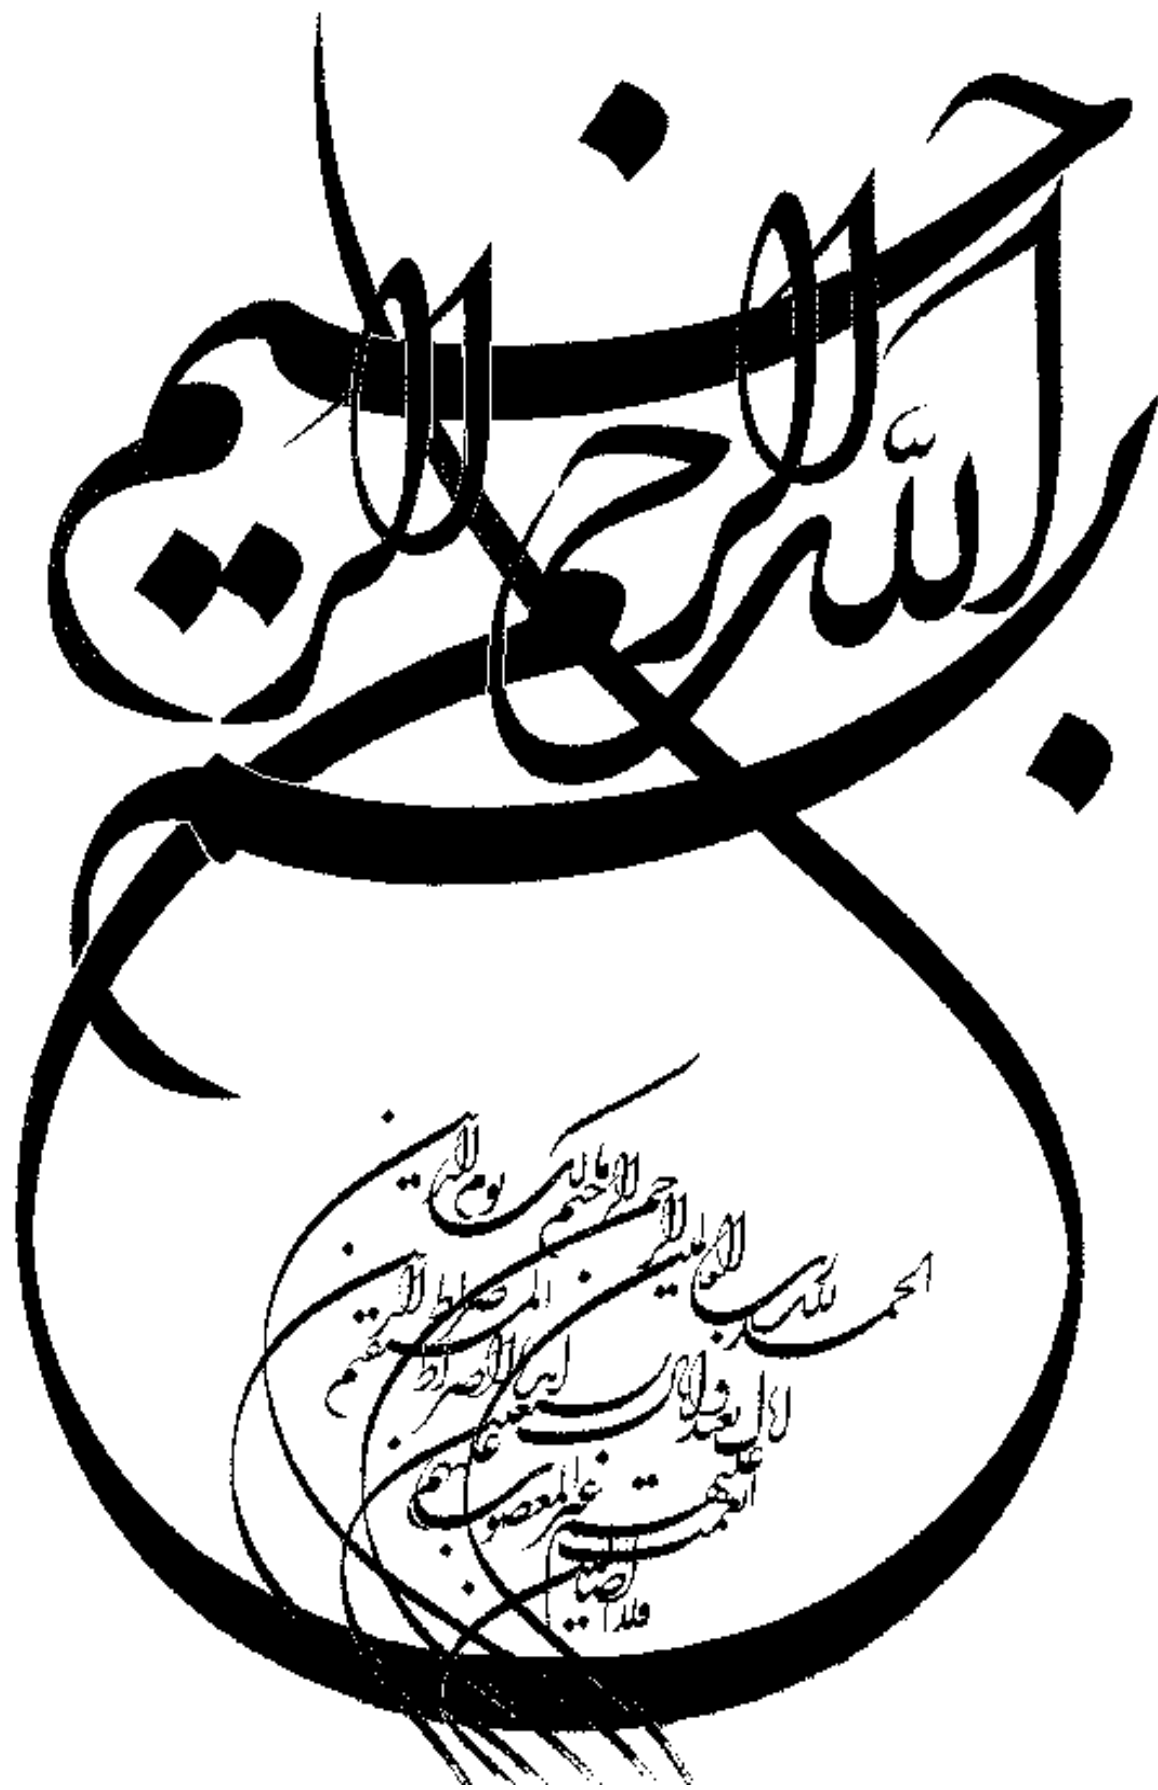 بسم الله الرحمن الرحيم
الحمد لله رب العالمين
الرحمن الرحيم مالك يوم الدين
اهدنا الصراط المستقيم
صراط الذين
انعمت عليهم غير المغضوب عليهم
ولا الضالين